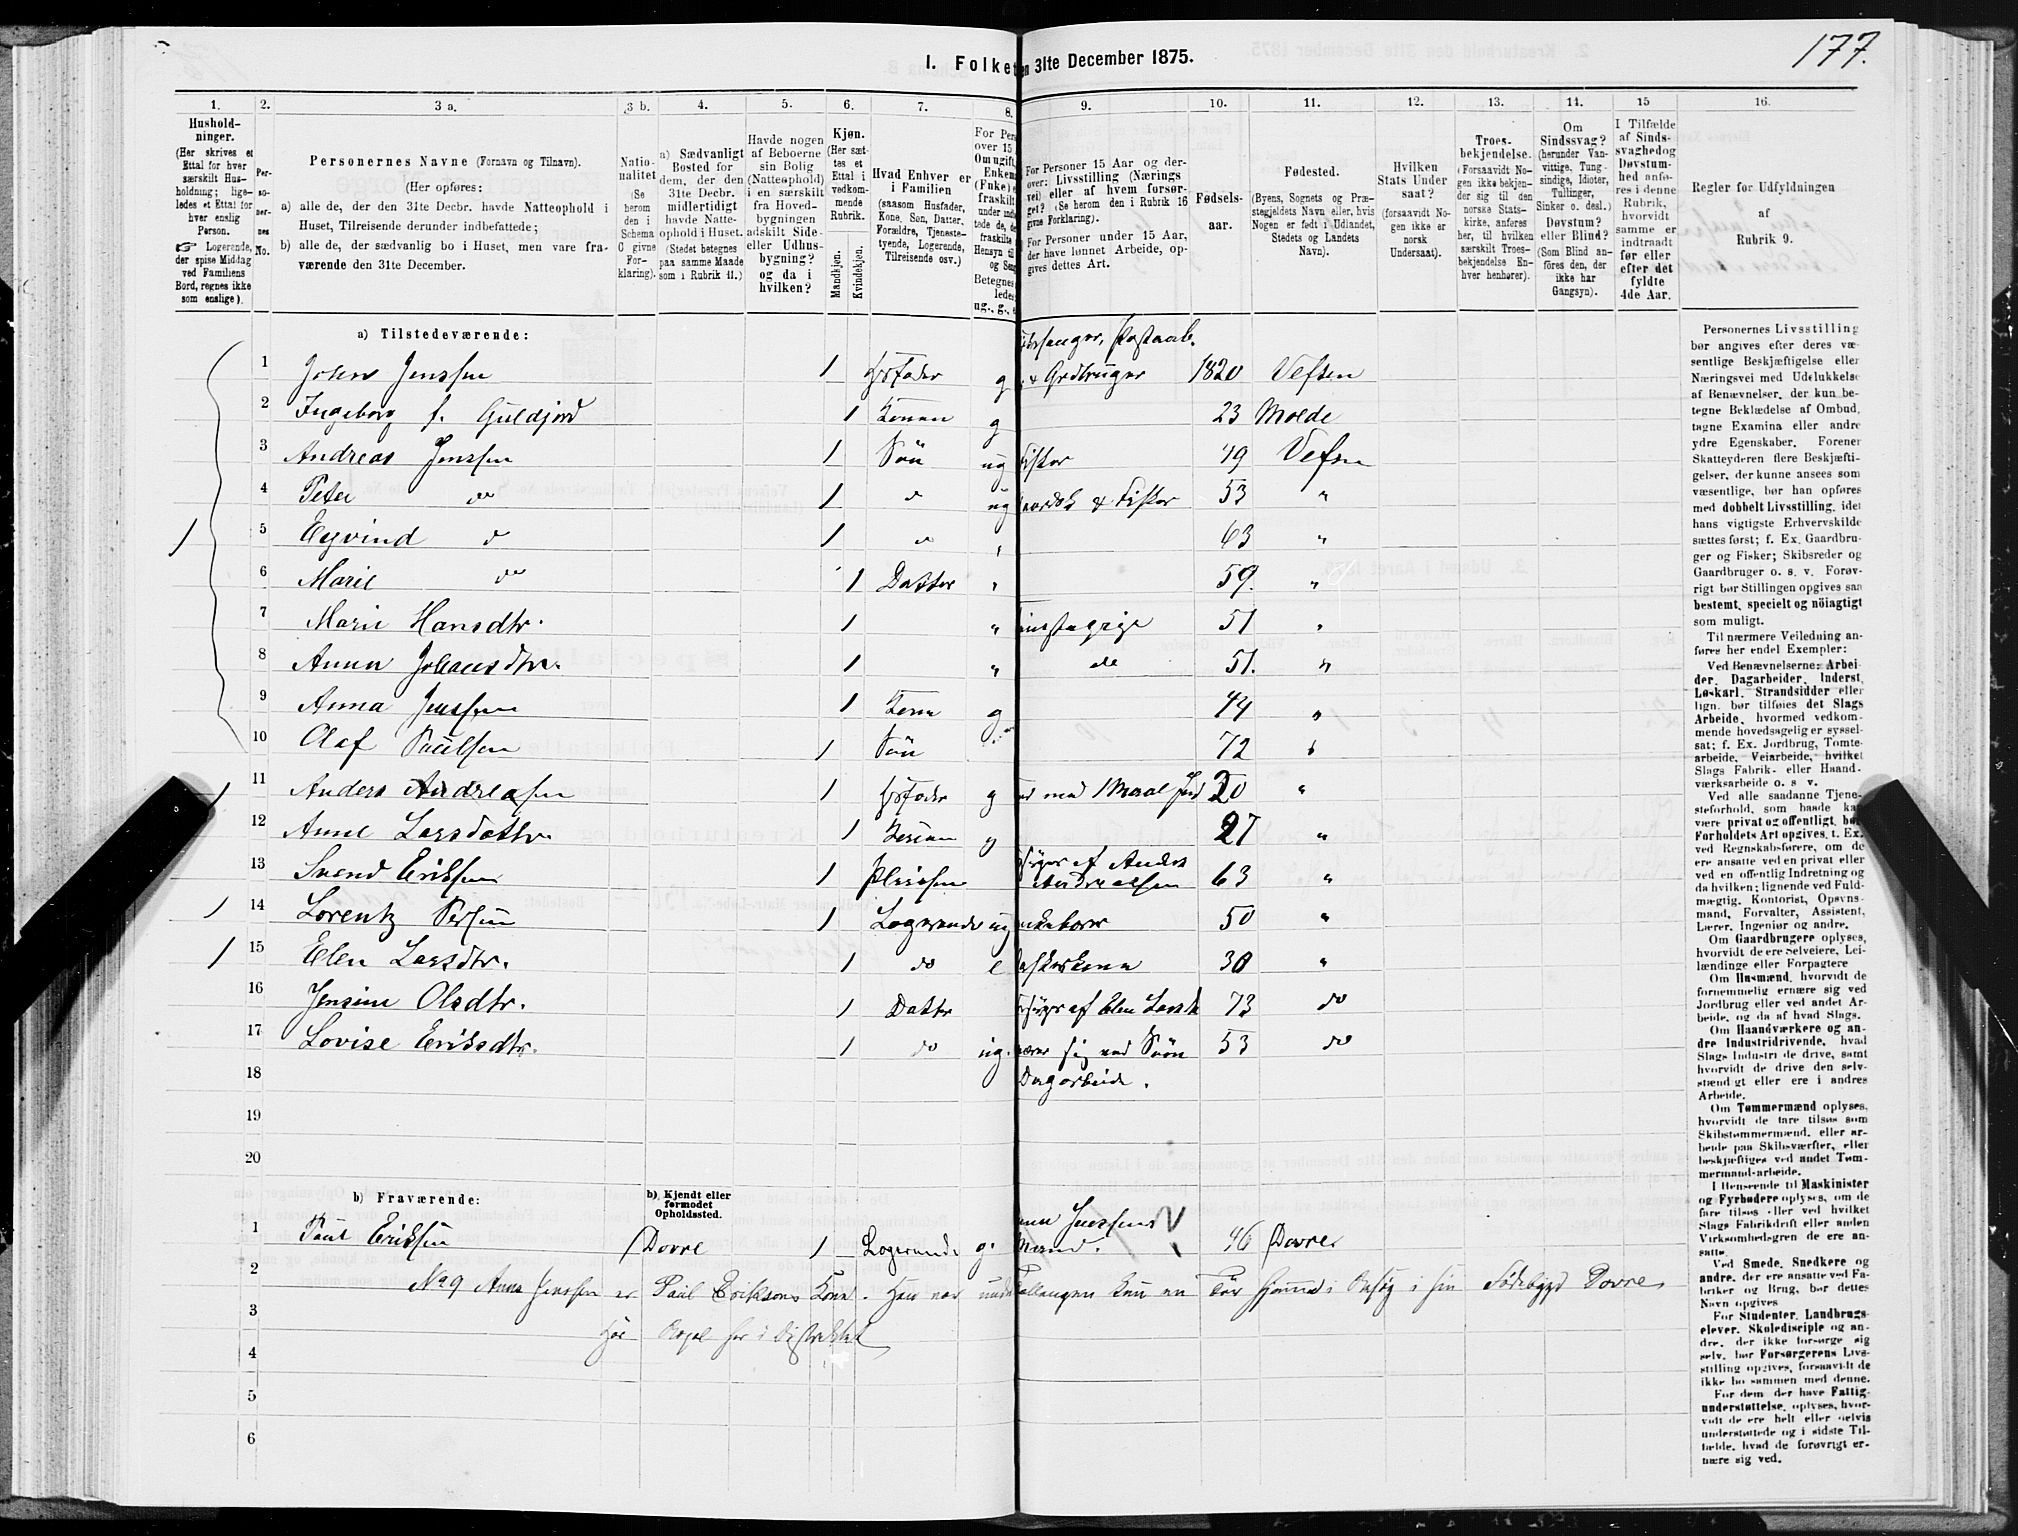 177.
I. Folket
en 31te December 1875.
1. 2. 3 a. 3 b. 4. 5. 6. 7. 8. 9. 10. 11. 12. 13. 14. 15 16.
Hushold-
ninger.
(Her skrives et
Ettal for hver
særskilt Hus-
holdning; lige-
ledes et Ettal for
hver enslig
Person.
☞ Logerende,
der spise Middag
ved Familiens
Bord, regnes ikke
som enslige).
Per-
so-
ner-
nes
No.
Personernes Navne (Fornavn og Tilnavn).
(Her opføres:
a) alle de, der den 31te Decbr. havde Natteophold i
Huset, Tilreisende derunder indbefattede;
b) alle de, der sædvanlig bo i Huset, men vare fra-
værende den 31te December.
Natio-
nalitet
(Se
herom
den i
Schema
C givne
For-
klaring).
a) Sædvanligt
Bosted for
dem, der den
31te Decbr.
midlertidigt
havde Natte-
ophold i Huset.
(Stedet betegnes
paa samme Maade
som i Rubrik 11.)
Havde nogen
af Beboerne
sin Bolig
(Natteophold)
i en særskilt
fra Hoved-
bygningen
adskilt Side-
eller Udhus-
bygning?
og da i
hvilken?
Kjøn.
(Her sæt-
tes et
Ettal i
vedkom-
mende
Rubrik.
Mandkjøn.
Kvindekjøn.
Hvad Enhver er
i Familien
(saasom Husfader,
Kone, Søn, Datter,
Forældre, Tjeneste-
tyende, Logerende,
Tilreisende osv.)
For Pers
over 15
Om ugift,
Enkem
(Enke) e
fraskilt
under indb
tede de, d
fraskilte
Hensyn til
og Seng
Betegnes
ledes
ug., g., e
For Personer 15 Aar og der-
over: Livsstilling (Nærings
vei) eller af hvem forsør-
get? (Se herom den i Rubrik 16
givne Forklaring).
For Personer under 15 Aar,
der have lønnet Arbeide, op-
gives dettes Art.
Fødsels-
aar.
Fødested.
(Byens, Sognets og Præ-
stegjeldets Navn eller, hvis
Nogen er født i Udlandet,
Stedets og Landets
Navn).
Hvilken
Stats Under
saat?
(forsaavidt No-
gen ikke er
norsk
Undersaat).
Troes-
bekjendelse.
(Forsaavidt No-
gen ikke bekjen-
der sig til den
norske Stats-
kirke, anføres
her, til hvilken
særskilt Troes-
bekjendelse En-
hver henhører).
Om
Sindssvag?
(herunder Van-
vittige, Tung-
sindige, Idioter,
Tullinger,
Sinker o. desl.)
Døvstum?
eller Blind?
(Som Blind an-
føres den, der
ikke har
Gangsyn).
I Tilfælde
af Sinds-
svaghed og
Døvstum-
hed anfø-
res i denne
Rubrik,
hvorvidt
samme er
indtraadt
før eller
efter det
fyldte
4de Aar.
Regler for Udfyldningen
af
Rubrik 9.
a) Tilstedeværende:
Postaab.
1 John Jenssen 1 Hsfader g & Grdbruger 1820 Vefsen
2 Ingeborg f. Guldjord 1 Konen g 23 Molde
3 Andreas Jenssen 1 Søn ug Fisker 49 Vefsn
4 Peter do 1 do ug & Fisker 53 "
1 5 Eyvind do 1 do " 63 "
6 Marie do 1 Datter " 59. "
7 Marie Hansdtr. 1 " 51 "
8 Anna Johansdtr. 1 " do 51. "
9 Anna Jenssen 1 Kone g 44 "
10 Olaf Paulsen 1 Søn 72 "
1 11 Anders Andreasen 1 Hsfader g 20 "
12 Anne Larsdatter 1 Konen g 27 "
13 Svend Eriksen 1 Pleiesøn af Anders Andreassen 63 "
1 14 Lorentz Persen 1 Logerende ug 50 "
1 15 Elen Larsdtr. 1 do e 30 "
16 Jensine Olsdtr. 1 Datter af Elen Larsdt 73 do
17 Lovise Eriksdtr. 1 do ug. sig ved Søn 53 do
18 Dagarbeide.
19
20
b) Fraværende:
b) Kjendt eller
formodet
Opholdssted.
1 Paul Eriksen Dovre 1 Logerende g. Jenssens Mand. 46 Dovre
2 No 9 Anna Jenssen er Paul Eriksens Kone. Han var under Tællingen kun en Tur hjemme i Besøg i sin Fødebygd Dovre
3
4
5
6
Personernes Livsstilling
bør angives efter deres væ-
sentlige Beskjæftigelse eller
Næringsvei med Udelukkelse
af Benævnelser, der kun be-
tegne Beklædelse af Ombud,
tagne Examina eller andre
ydre Egenskaber. Forener
Skatteyderen flere Beskjæfti-
gelser, der kunne ansees som
væsentlige, bør han opføres
med dobbelt Livsstilling, idet
hans vigtigste Erhvervskilde
sættes først; f. Ex. Gaardbru-
ger og Fisker; Skibsreder og
Gaardbruger o. s. v. Forøv-
rigt bør Stillingen opgives saa
bestemt, specielt og nöiagtigt
som muligt.
Til nærmere Veiledning an-
føres her endel Exempler:
Ved Benævnelserne: Arbei-
der, Dagarbeider, Inderst,
Løskarl, Strandsidder eller
lign. bør tilføies det Slags
Arbeide, hvormed vedkom-
mende hovedsagelig er syssel-
sat; f. Ex. Jordbrug, Tomte-
arbeide, Veiarbeide, hvilket
Slags Fabrik- eller Haand-
værksarbeide o. s. v.
Ved alle saadanne Tjene-
steforhold, som baade kan
være privat og offentligt, bør
Forholdets Art opgives, t. Ex.
ved Regnskabsførere, om de
ere ansatte ved en privat eller
ved en offentlig Indretning og
da hvilken; lignende ved Fuld-
mægtig, Kontorist, Opsyns-
mand, Forvalter, Assistent,
Lærer, Ingeniør og andre.
Om Gaardbrugere oplyses,
hvorvidt de ere selveiere, Lei-
lændinge eller Forpagtere
Om Husmænd, hvorvidt de
fornemmelig ernære sig ved
Jordbrug eller ved andet Ar-
beide, og da af hvad Slags.
Om Haandværkere og an-
dre Industridrivende, hvad
Slags Industri de drive, samt
hvorvidt de drive den selv-
stændigt eller ere i andres
Arbeide.
Om Tømmermænd oplyses,
hvorvidt de fare tilsøs som
Skibstømmermænd, eller ar-
beide paa Skibsværfter, eller
beskjæftiges ved andet Tøm-
mermandsarbeide.
I Henseende til Maskinister
og Fyrbødere oplyses, om de
fare tilsøs eller ved hvilket
Slags Fabrikdrift eller anden
Virksomhedsgren de ere an-
satte.
Ved Smede, Snedkere og
andre, der ere ansatte ved Fa-
briker og Brug, bør dettes
Navn opgives
For Studenter, Landbrugs-
elever, Skoledisciple og an-
dre, der ikke forsørge sig
selv, bør Forsørgerens Livs-
stilling opgives, forsaavidt de
ikke bo sammen med denne.
For dem, der have Fattig-
understøttelse, oplyses, hvor-
vidt de ere helt eller delvis
understøttede og i sidste Til-
fælde, hvad de forøvrigt er-
nære sig ved.